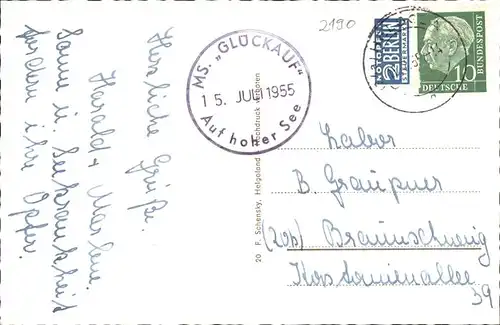 2190
MS. „GLÜCKAUF“
15. JULI 1955
Auf hoher See
NOTOPFER
2 BERLIN
STEUERMARKE
DEUTSCHE BUNDESPOST
10
Herzliche Grüße.
Harald + Marlene.
Sonne u. Seekrankheit
fordern ihre Opfer.
20 F. Schensky, Helgoland
Nachdruck verboten
Labor
B. Graupner
(20b) Braunschweig
Kastanienallee
39